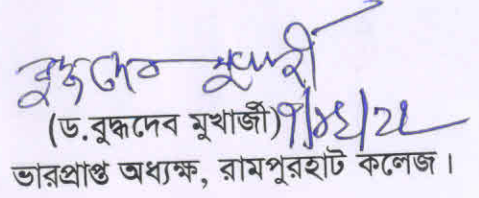 বুদ্ধদেব মুখার্জী
(ড.বুদ্ধদেব মুখার্জী)
ভারপ্রাপ্ত অধ্যক্ষ, রামপুরহাট কলেজ।